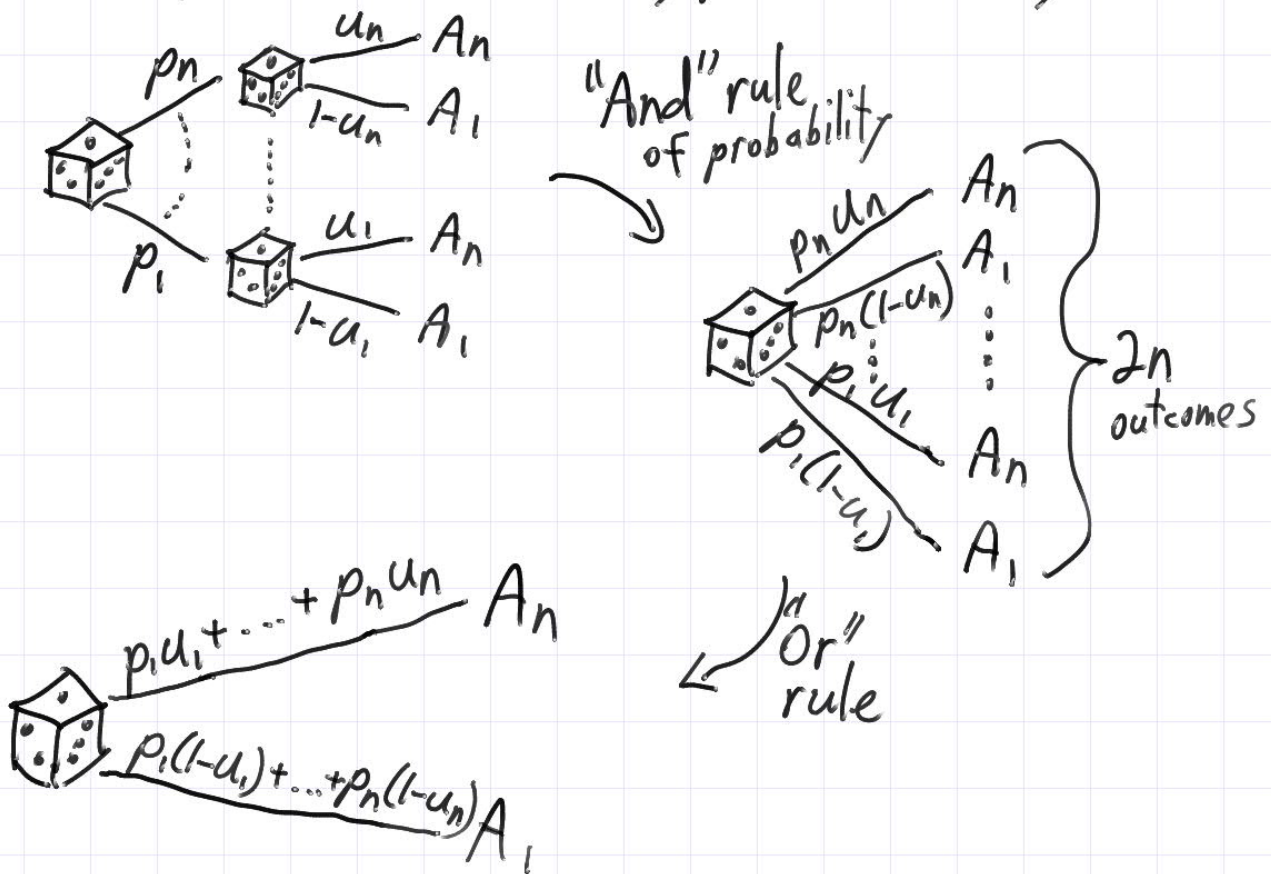 pn
un
An
1-un
A1
p1
u1
An
1-u1
A1
"And" rule
of probability
pn un
An
pn(1-un)
A1
p1 u1
An
p1(1-u1)
A1
2n
outcomes
"Or"
rule
p1u1+...+pnun
An
p1(1-u1)+...+pn(1-un)
A1